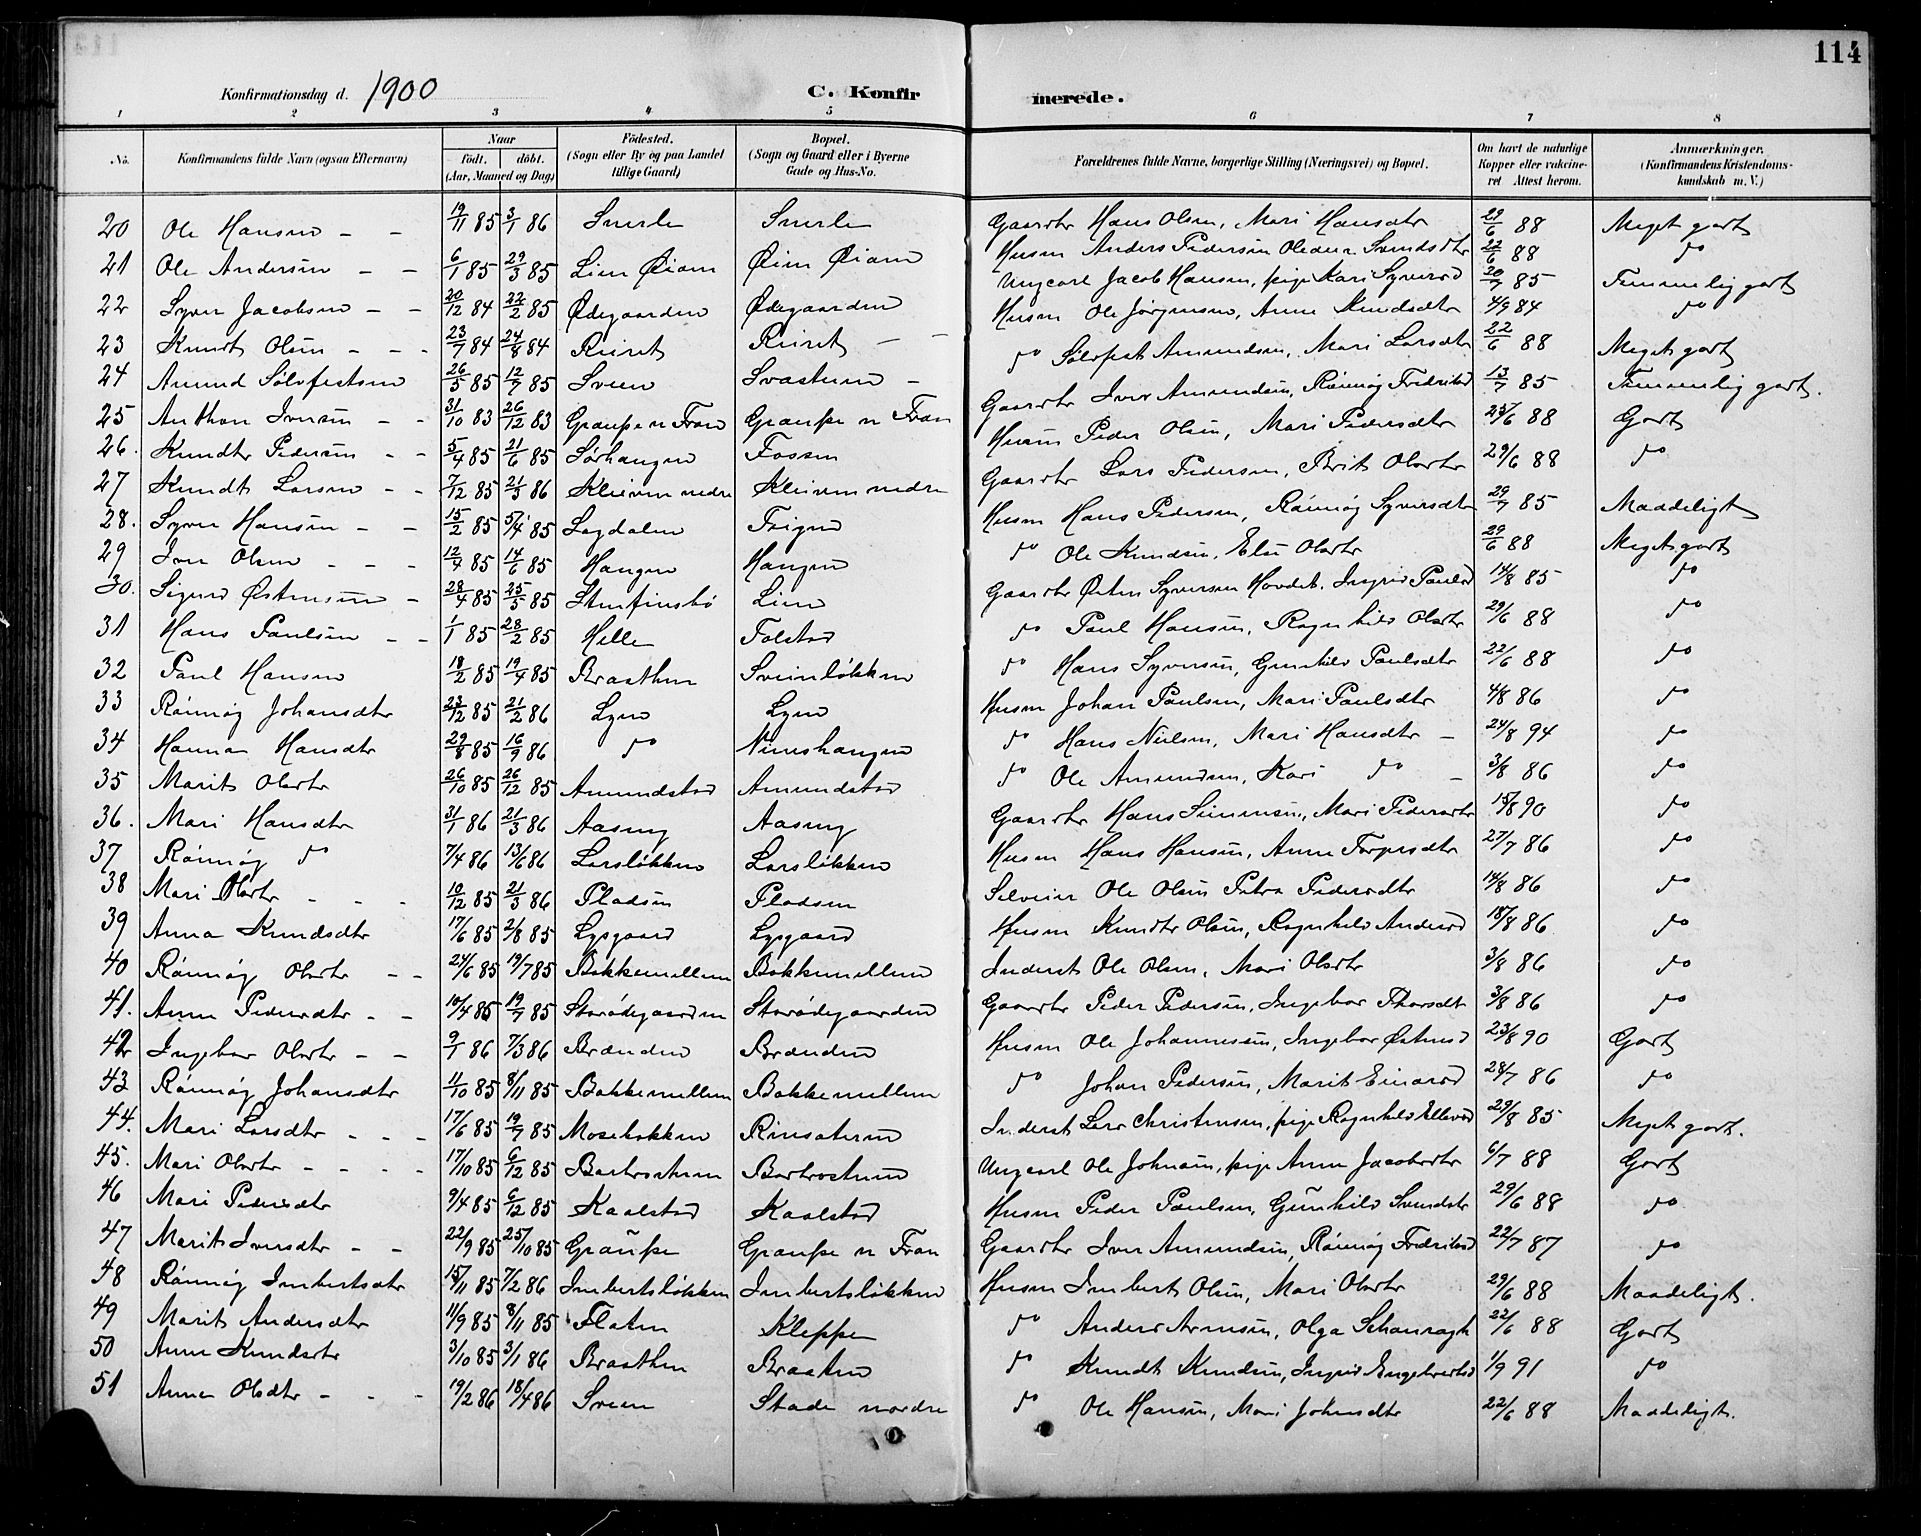 114
Konfirmationsdag d. 1900 C. Konfirmerede.
1 2 3 4 5 6 7 8
No. Konfirmandens fulde Navn (ogsaa Efternavn) Naar födt. döbt. (Aar, Maaned og Dag) Födested. (Sogn eller By og paa Landet tillige Gaard) Bopæl. (Sogn og Gaard eller i Byerne Gade og Hus-No. Forældrenes fulde Navne, borgerlige Stilling (Næringsvei) og Bopæl. Om havt de naturlige Kopper eller vakcineret Attest herom. Anmærkninger. (Konfirmandens Kristendomskundskab m. V.)
20 Ole Hansen - - 19/11 85 3/1 86 Snerle Snerle Gaardbr Hans Olsen, Mari Hansdtr 29/6 88 Meget godt
21 Ole Andersen - - 6/1 85 29/3 85 Lien Öiom Öien Öiom Husm Anders Pedersen Oleana Svendsdtr 22/6 88 do
22 Syver Jacobsen - - 20/12 84 22/2 85 Ødegaarden Ødegaarden Ungcarl Jacob Hansen, pige Kari Syversd 20/7 85 Temmelig godt
23 Knudt Olsen - - - 23/7 84 24/8 84 Reiret Reiret - - Husm Ole Jørgensen, Anne Knudsdtr 4/9 84 do
24 Amund Sølvfestsen 26/5 85 12/7 85 Sveen Svastuen - do Sølvfest Amundsen, Mari Larsdtr 22/6 88 Meget godt
25 Anthon Iversen - - 31/10 83 26/12 83 Graupe n Fron Graupe n Fron Gaardbr Iver Amundsen, Rönnög Fredriksd 13/7 85 Temmelig godt.
26. Knudt Pedersen - - 5/4 85 21/6 85 Sörhaugen Fossen Husm Peder Olsen, Mari Pedersdtr 23/6 88 Godt
27 Knudt Larsen - - 7/12 85 21/3 86 Kleiven nedre Kleiven nedre Gaardbr Lars Pedersen, Brit Olsdtr 29/6 88 do
28. Syver Hansen - - 15/2 85 5/4 85 Lagdalen Hans Pedersen, Rönnög Syversdtr 29/7 85 Maadeligt
29 Iver Olsen - - - 12/4 85 14/6 85 Haugen Haugen do Ole Knudsen, Else Olsdtr 29/6 88 Meget godt
30. Sigurd Østensen - 28/4 85 25/5 85 Stenfinsbö Lien Gaardbr Østen Syversen Hovdet, Ingrid Paulsd 14/8 85 do
31 Hans Paulsen - - 1/1 85 28/2 85 Helle Folstad do Paul Hansen, Ragnhild Olsdtr 29/6 88 do
32 Paul Hansen 18/2 85 19/4 85 Braathen Sveinløkken do Hans Syversen, Gunhild Paulsdtr 22/6 88 do
33 Rönnög Johansdtr 23/12 85 21/2 86 Lyen Lyen Husm Johan Paulsen, Mari Paulsdtr 4/8 86 do
34 Hanna Hansdtr 29/8 85 16/9 86 do do Hans Nielsen, Mari Hansdtr - 24/8 94 do
35 Marit Olsdtr 26/10 85 26/12 85 Amundstad Amundstad do Ole Amundsen, Kari do - 3/8 86 do
36. Mari Hansdtr 31/1 86 21/3 86 Aaseng Aaseng Gaardbr Hans Simensen, Mari Pedersdtr 15/8 90 do
37 Rönnög do 7/4 86 13/6 86 Larsløkken Larsløkken Husm Hans Hansen, Anne Torgersdtr 27/7 86 do
38 Mari Olsdtr - - - 10/12 85 21/3 86 Pladsen Pladsen Selveier Ole Olsen Petra Pedersdtr 14/8 86 do
39 Anna Knudsdtr 17/6 85 2/8 85 Lysgaard Lysgaard Husm Knudt Olsen, Ragnhild Andersd 18/8 86 do
40 Rönnög Olsdtr - - 24/6 85 19/7 85 Bakkemellem Bakkemellem Inderst Ole Olsen, Mari Olsdtr 3/8 86 do
41. Anne Pedersdtr - - 10/4 85 19/7 85 Storødegaarden Storødegaarden Gaardbr Peder Pedersen, Ingebor Thorsdt 3/8 86 do
42 Ingebor Olsdtr - - 9/1 86 7/3 86 Brænden Brænden Husm Ole Johannessen, Ingebor Østensd 23/8 90 Godt
43 Rönnög Johansdtr 11/10 85 8/11 85 Bakkemellem Bakkemellem do Johan Pedersen, Marit Einarsd 28/7 86 do
44. Mari Larsdtr - - - 17/6 85 19/7 85 Mosebakken Inderst Lars Christensen, pige Ragnhild Ellevsd 29/8 85 Meget godt.
45. Mari Olsdtr - - - - 17/10 85 6/12 85 Barbrostuen Barbrostuen Ungcarl Ole Johnsen, pige Anne Jacobsdtr 6/7 88 Godt
46 Mari Pedersdtr 9/4 85 6/12 85 Kaalstad Kaalstad Husm Peder Paulsen, Gunhild Svendsdtr 29/6 88 do
47 Marit Iversdtr - - 22/9 85 25/10 85 Graupe Graupe n Fron Gaardbr Iver Amundsen, Rönnög Fredriksd 22/7 87 do
48 Rönnög Imbertsdtr 15/11 85 7/2 86 Imbertsløkken Imbertsløkken Husm Imbert Olsen, Mari Olsdtr 29/6 88 Maadeligt.
49 Marit Andersdtr 11/9 85 8/11 85 Flaten Kleppe do Anders Arnesen, Olga 22/6 88 Godt
50 Anne Knudsdtr 3/10 85 3/1 86 Braathen Braaten do Knudt Knudsen, Ingrid Engebretsd 1/9 91 do
51 Anne Olsdtr - - - 19/2 86 18/4 86 Sveen Stade nordre do Ole Hansen, Mari Johnsdtr 22/6 88 Maadeligt.